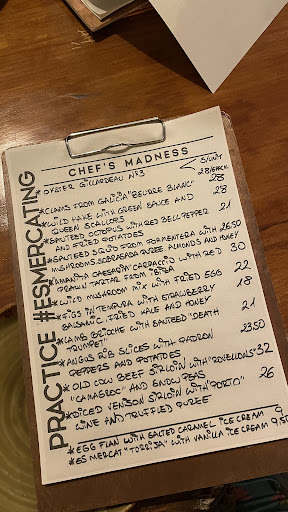 PRACTICE #ESMERCATING
CHEF'S MADNESS
*OYSTER GILLARDEAU Nº3 5/UNIT
28/6PACK.
*CLAMS FROM GALICIA "BEURRE BLANC" 28
*WILD HAKE WITH GREEN SAUCE AND 28
QUEEN SCALLOPS
*SAUTEED OCTOPUS WITH RED BELL PEPPER 21
AND FRIED POTATOES
*SAUTEED SQUID FROM FORMENTERA WITH 26.50
MUSHROOMS, SOBRASADA PUREE, ALMONDS AND HONEY
*AMANITA CAESAREA CARPACCIO WITH RED 30
PRAWN TARTAR FROM IBIZA
*WILD MUSHROOM MIX WITH FRIED EGG 22
*FIGS IN TEMPURA WITH STRAWBERRY 18
BALSAMIC, FRIED KALE AND HONEY
*LAMB BRIOCHE WITH SAUTEED "DEATH 21
TRUMPET"
*ANGUS RIB SLICES WITH PADRON 23.50
PEPPERS AND POTATOES
*OLD COW BEEF SIRLOIN WITH "ROVELLONS" 32
"CAMAGROC" AND SNOW PEAS
*DICED VENISON SIRLOIN WITH "PORTO" 26
WINE AND TRUFFLED PUREE
*EGG FLAN WITH SALTED CARAMEL ICE CREAM 9
*ES MERCAT "TORRIJA" WITH VANILLA ICE CREAM 9,50